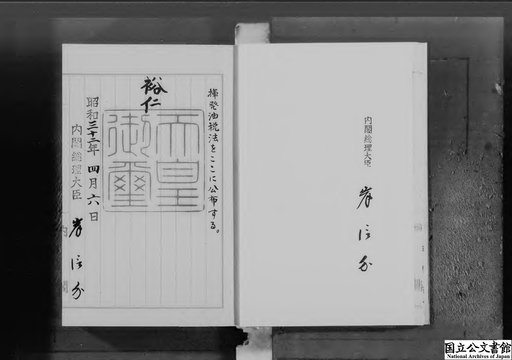 揮発油税法をここに公布する。
裕仁
天皇
御璽
昭和三十二年四月六日
内閣総理大臣 岸信介
内閣総理大臣
岸信介
国立公文書館
National Archives of Japan